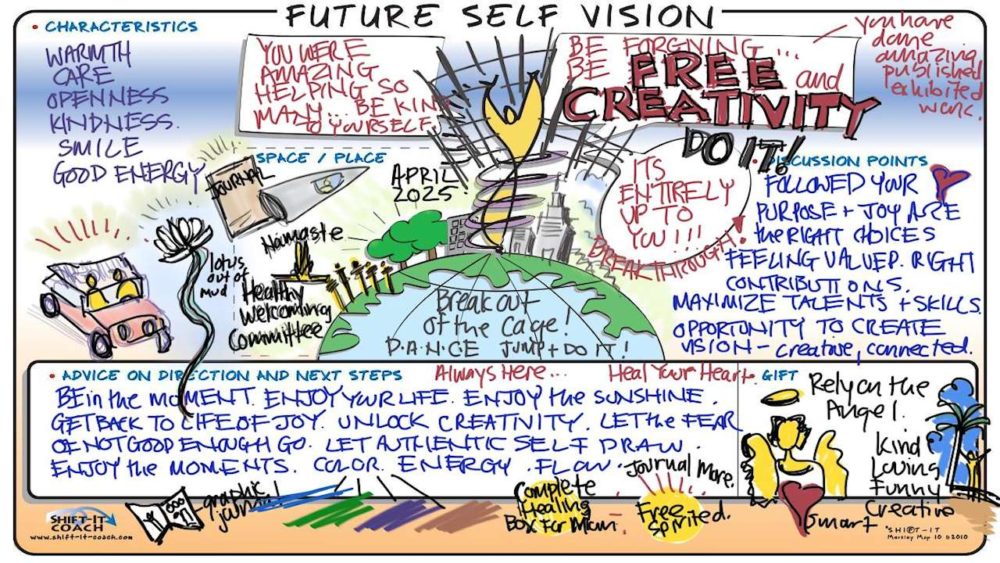 FUTURE SELF VISION
• CHARACTERISTICS
WARMTH
CARE
OPENNESS
KINDNESS.
SMILE
GOOD ENERGY
YOU WERE
AMAZING
HELPING SO
MANY... BE KIND
TO YOURSELF.
BE FORGIVING...
BE
FREE
and
CREATIVITY
DO IT!
you have
done
amazing
published
exhibited
work.
SPACE / PLACE
JOURNAL
APRIL
2025
Namaste
Healthy
Welcoming
Committee
lotus
out of
mud
ITS
ENTIRELY
UP TO
YOU!!!
BREAKTHROUGH!
Break out
of the Cage!
D.A.N.C.E JUMP + DO IT!
• DISCUSSION POINTS
FOLLOWED YOUR
PURPOSE + JOY ARE
the RIGHT CHOICES
FEELING VALUED. RIGHT
CONTRIBUTIONS.
MAXIMIZE TALENTS + SKILLS.
OPPORTUNITY TO CREATE
VISION - creative, connected.
• ADVICE ON DIRECTION AND NEXT STEPS
Always Here...
Heal Your Heart.
BE in the moMENT. ENJOY YOUR LIFE. ENJOY THE SUNSHINE.
GET BACK TO LIFE OF JOY. UNLOCK CREATIVITY. LET the FEAR
OF NOT GOOD ENOUGH GO. LET AUTHENTIC SELF DRAW.
ENJOY the MOMENTS. COLOR. ENERGY. FLOW.
Journal More.
GIFT
Rely on the
Angel.
Kind
Loving
Funny
Creative
Smart
graphic
Complete
Healing
Box For Mum
Free
Spirited.
SHIFT-IT
COACH
www.shift-it-coach.com
SHIFT-IT